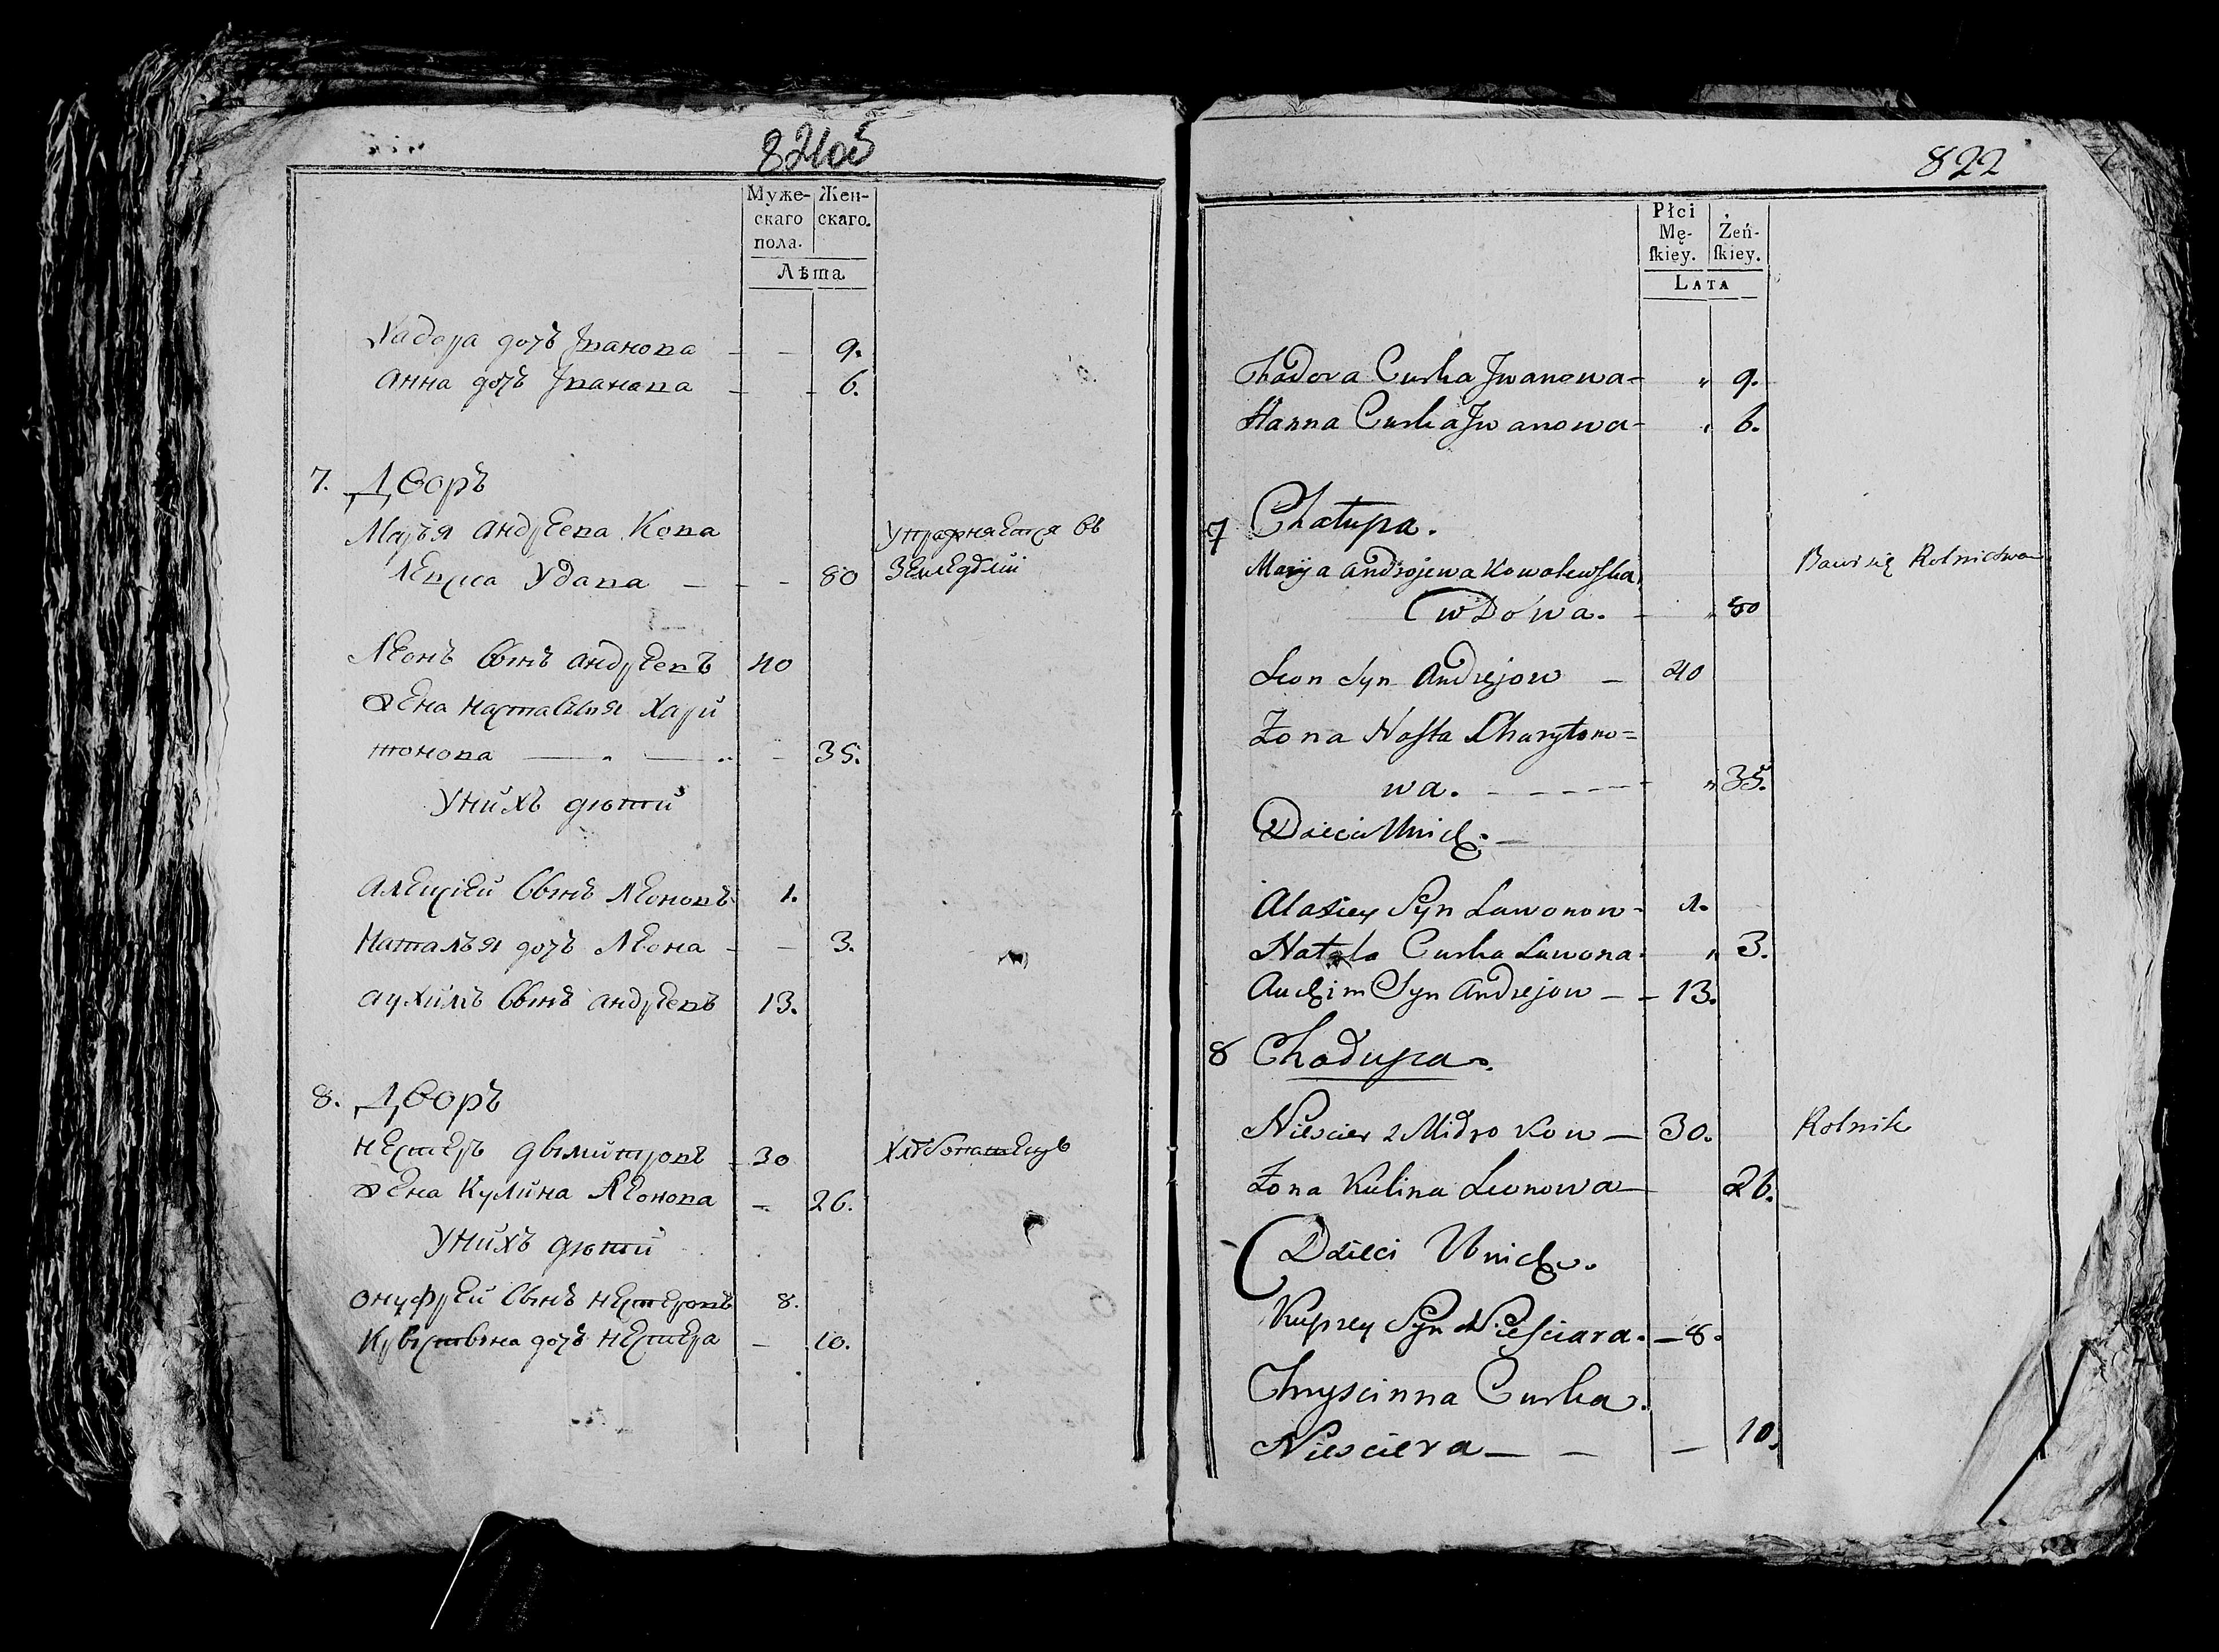 Муже-
скаго
пола.
Жен-
скаго.
Лѣта
Хадора дочъ Іванова - - 9.
Анна дочъ Іванова - - 6.
7. Дворъ
Маръя андреева Кова
левска удава - - - 80
упражняется въ
земледѣлии
Леонъ сынъ андреевъ 40
жена настасия Хари
тонова - - 35.
у нихъ дѣтии
алексией сынъ Леоновъ 1.
Наталъя дочъ Леона - - 3.
аухимъ сынъ андреевъ 13.
8. Дворъ
нестеръ дымитровъ 30
хлѣбопашецъ
жена Кулина Леонова - 26.
у нихъ дѣтии
онуфрей сынъ нестеровъ 8.
Крыстына дочъ нестера - 10.
822
Płci
Mę-
ſkiey.
Żeń-
ſkiey.
LATA
Chadora Curka Jwanowa- " 9.
Hanna Curka Jwanowa- " 6.
7 Chałupa.
Maryja andrejewa Kowalewska
Bawi się Rolnictwam
wdowa. - " 80
Leon Syn Andrejow - 40
Żona Nasta Charytono=
wa. - - - - - " 35.
Dzieci Unich. -
Alaxiey Syn Lawonow - 1.
Natala Curka Lawona. " 3.
Auchim Syn Andrejow - - 13.
8 Chadupa.
Niescier Midro Kow - 30.
Rolnik
Żona Kulina Leonowa - 26.
Dzieci Unich.
Kuprey Syn Niesciara. - 8.
Chryscinna Curka.
Niesciera - - - 10.